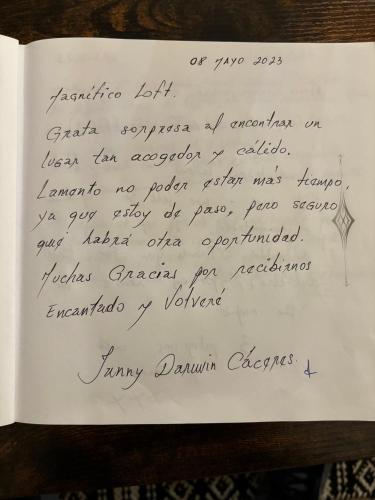 08 MAYO 2023
Magnífico Loft.
Grata sorpresa al encontrar un
lugar tan acogedor y cálido.
Lamento no poder estar más tiempo,
ya que estoy de paso, pero seguro
que habrá otra oportunidad.
Muchas Gracias por recibirnos
Encantado y Volveré
Junny Darwin Cáceres.